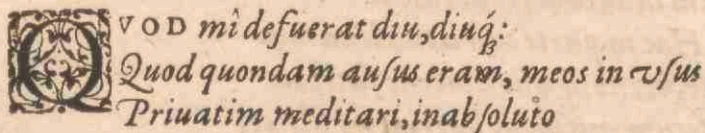 QVOD mi defuerat diu, diuq́;:
Quod quondam auſus eram, meos in vſus
Priuatim meditari, inabſoluto